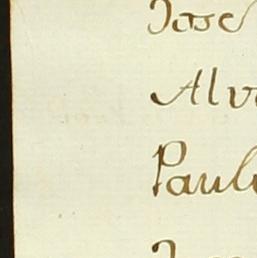 Jose
Alv
Paul